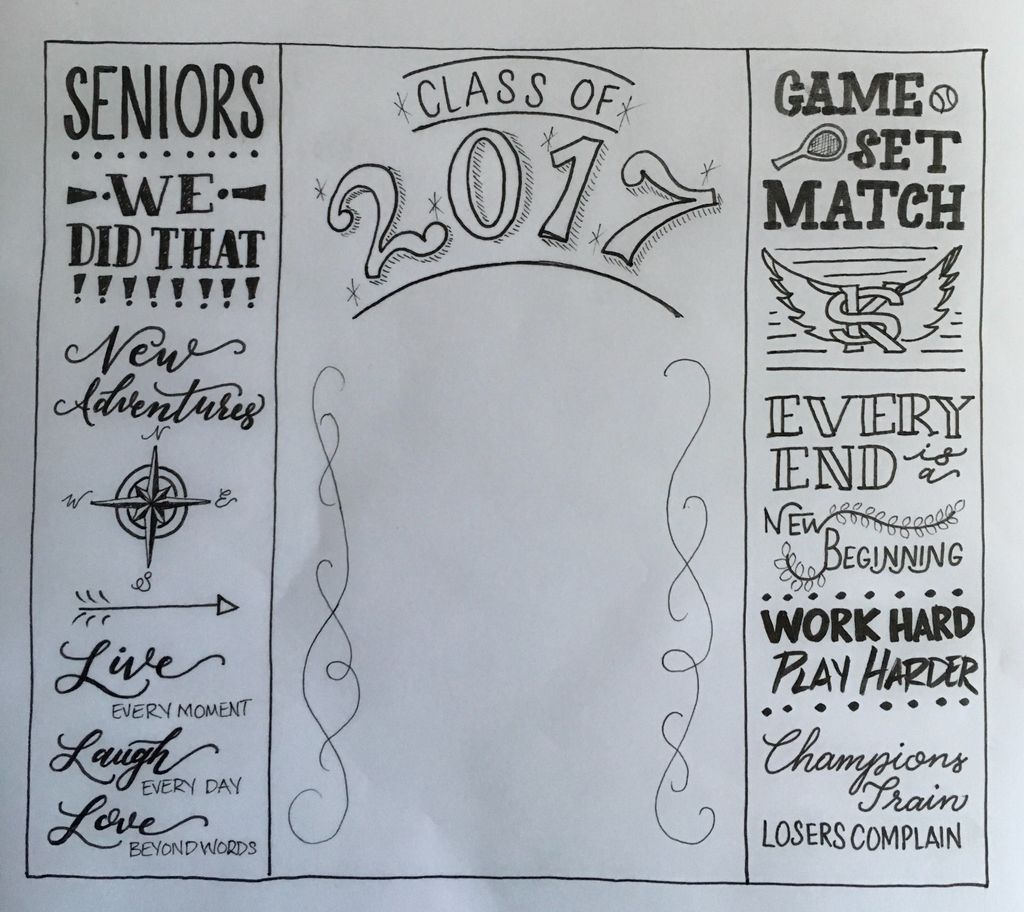 SENIORS
WE
DID THAT
!!!!!!!!
New
Adventures
N
W E
S
Live
EVERY MOMENT
Laugh
EVERY DAY
Love
BEYOND WORDS
CLASS OF
2017
GAME
SET
MATCH
EVERY
END is a
NEW
BEGINNING
WORK HARD
PLAY HARDER
Champions
Train
LOSERS COMPLAIN